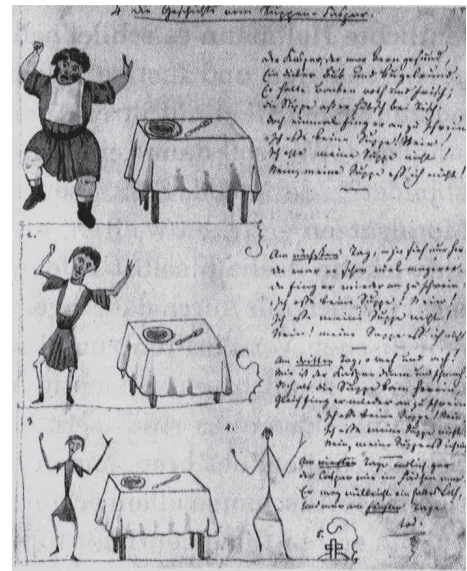 4 Die Geschichte vom Suppen-Kaspar.
Der Kaspar, der war kern gesund,
Ein dicker Bub und kugelrund.
Er hatte Backen roth und frisch;
die Suppe aß er hübsch bei Tisch.
Doch einmal fing er an zu schrein
Ich esse keine Suppe! Nein!
Ich esse meine Suppe nicht
Nein, meine Suppe ess ich nicht!
2.
Am nächsten Tag, ja sieh nur her
da war er schon viel magerer.
da fing er wieder an zu schrein
Ich esse keine Suppe! Nein!
Ich esse meine Suppe nicht
Nein! meine Suppe ess ich nicht
Am dritten Tag, o weh und ach!
Wie ist der Kaspar dünn und schwach
Doch als die Suppe kam herein
Gleich fing er wieder an zu schrein
Ich esse keine Suppe! Nein
Ich esse meine Suppe nicht
Nein, meine Suppe ess ich
3.
4.
Am vierten Tage endlich gar
der Caspar wie ein Fädchen war
Er wog vielleicht ein halbes Loth,
und war am fünften Tage
todt.
5.